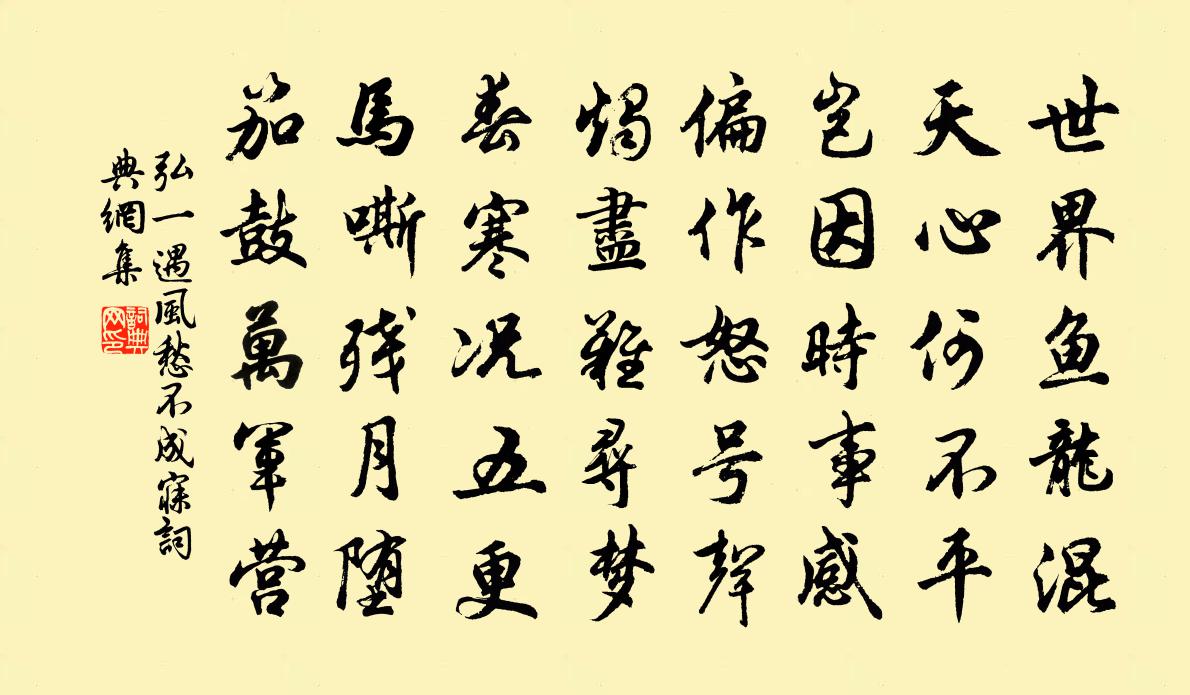 世界鱼龍混
天心何不平
岂因時事感
偏作怒号聲
燭盡難尋梦
春寒况五更
馬嘶残月堕
笳鼓萬军营
弘一遇風愁不成寐詞
典網集
詞典网印